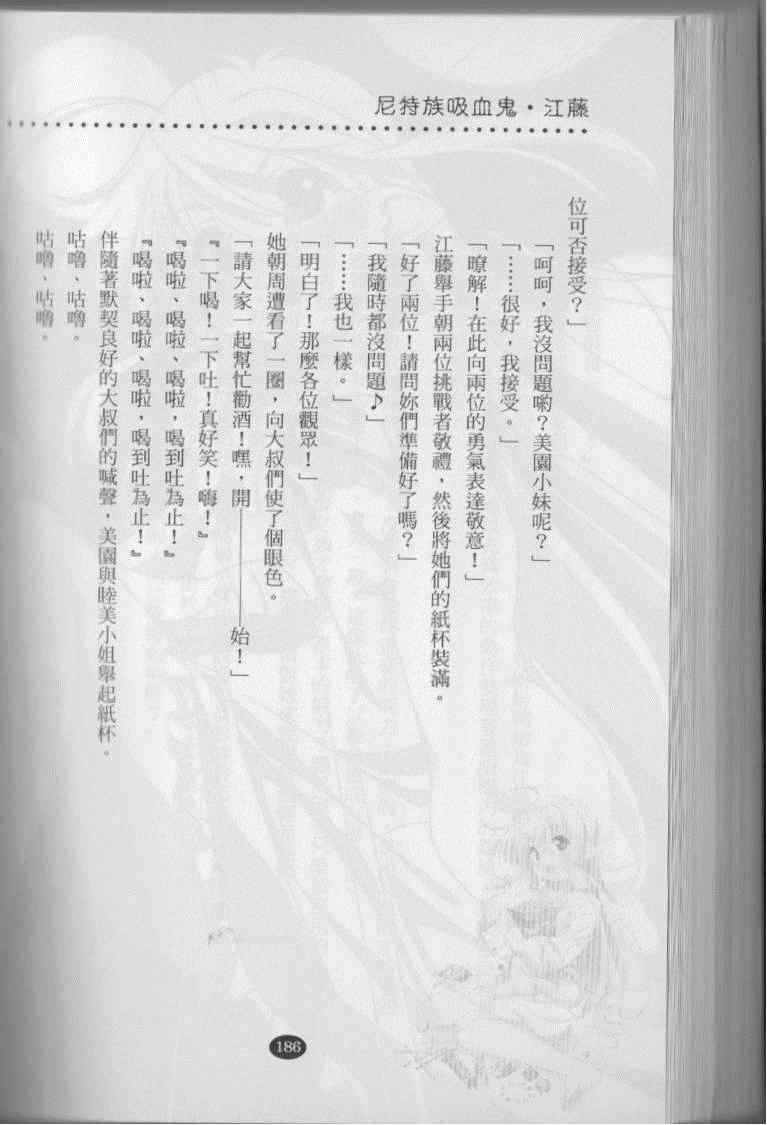 尼特族吸血鬼・江藤
位可否接受？」
「呵呵，我沒問題喲？美園小妹呢？」
「……很好，我接受。」
「瞭解！在此向兩位的勇氣表達敬意！」
江藤舉手朝兩位挑戰者敬禮，然後將她們的紙杯裝滿。
「好了兩位！請問妳們準備好了嗎？」
「我隨時都沒問題♪」
「……我也一樣。」
「明白了！那麼各位觀眾！」
她朝周遭看了一圈，向大叔們使了個眼色。
「請大家一起幫忙勸酒！嘿，開————始！」
『一下喝！一下吐！真好笑！嗨！』
『喝啦、喝啦、喝啦，喝到吐為止！』
『喝啦、喝啦、喝啦，喝到吐為止！』
伴隨著默契良好的大叔們的喊聲，美園與睦美小姐舉起紙杯。
咕嚕、咕嚕。
咕嚕、咕嚕。
186